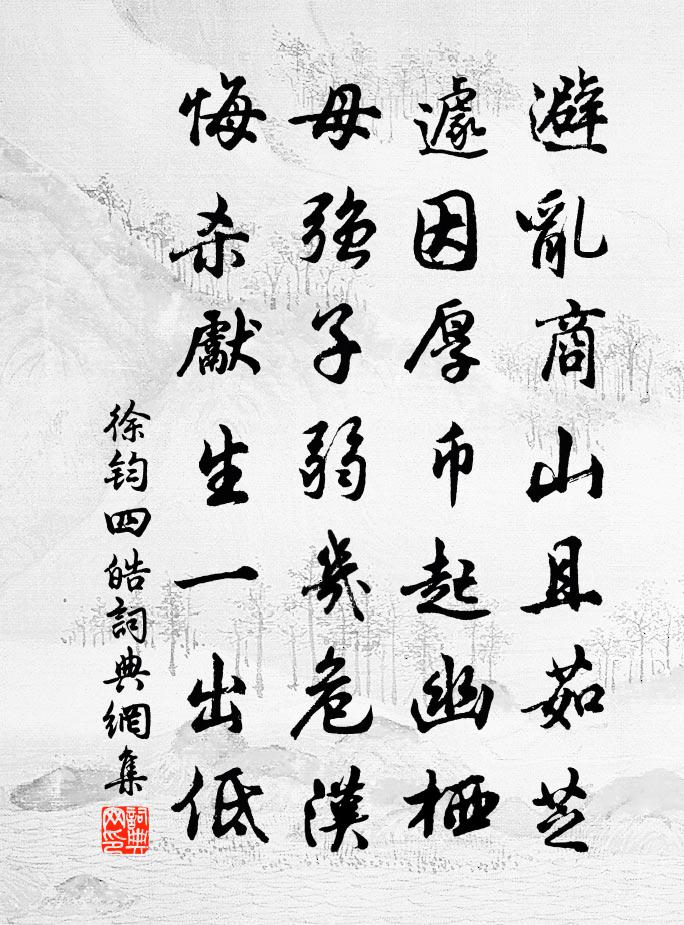 避亂商山且茹芝
遽因厚币起幽栖
母强子弱幾危漢
悔杀獻生一出低
徐钧四皓詞典網集
詞典网印